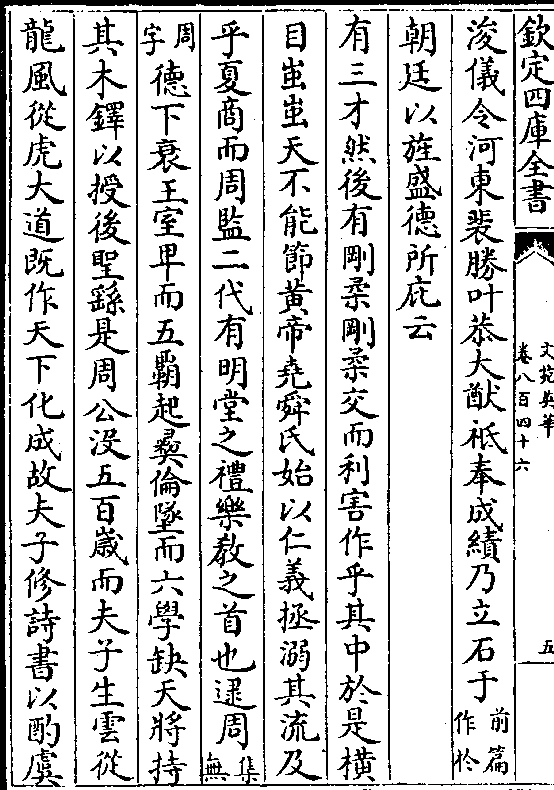 欽定四庫全書
文苑英華
卷八百四十六
五
浚儀令河東裴勝叶恭大猷祗奉成績乃立石于前篇作於
朝廷以旌盛德所庇云
有三才然後有剛柔剛柔交而利害作乎其中於是橫
目蚩蚩天不能節黃帝堯舜氏始以仁義拯溺其流及
乎夏商而周監二代有明堂之禮樂教之首也逮周集無
周字德下衰王室卑而五霸起彛倫墜而六學缺天將持
其木鐸以授後聖繇是周公没五百歲而夫子生雲從
龍風從虎大道既作天下化成故夫子修詩書以酌虞